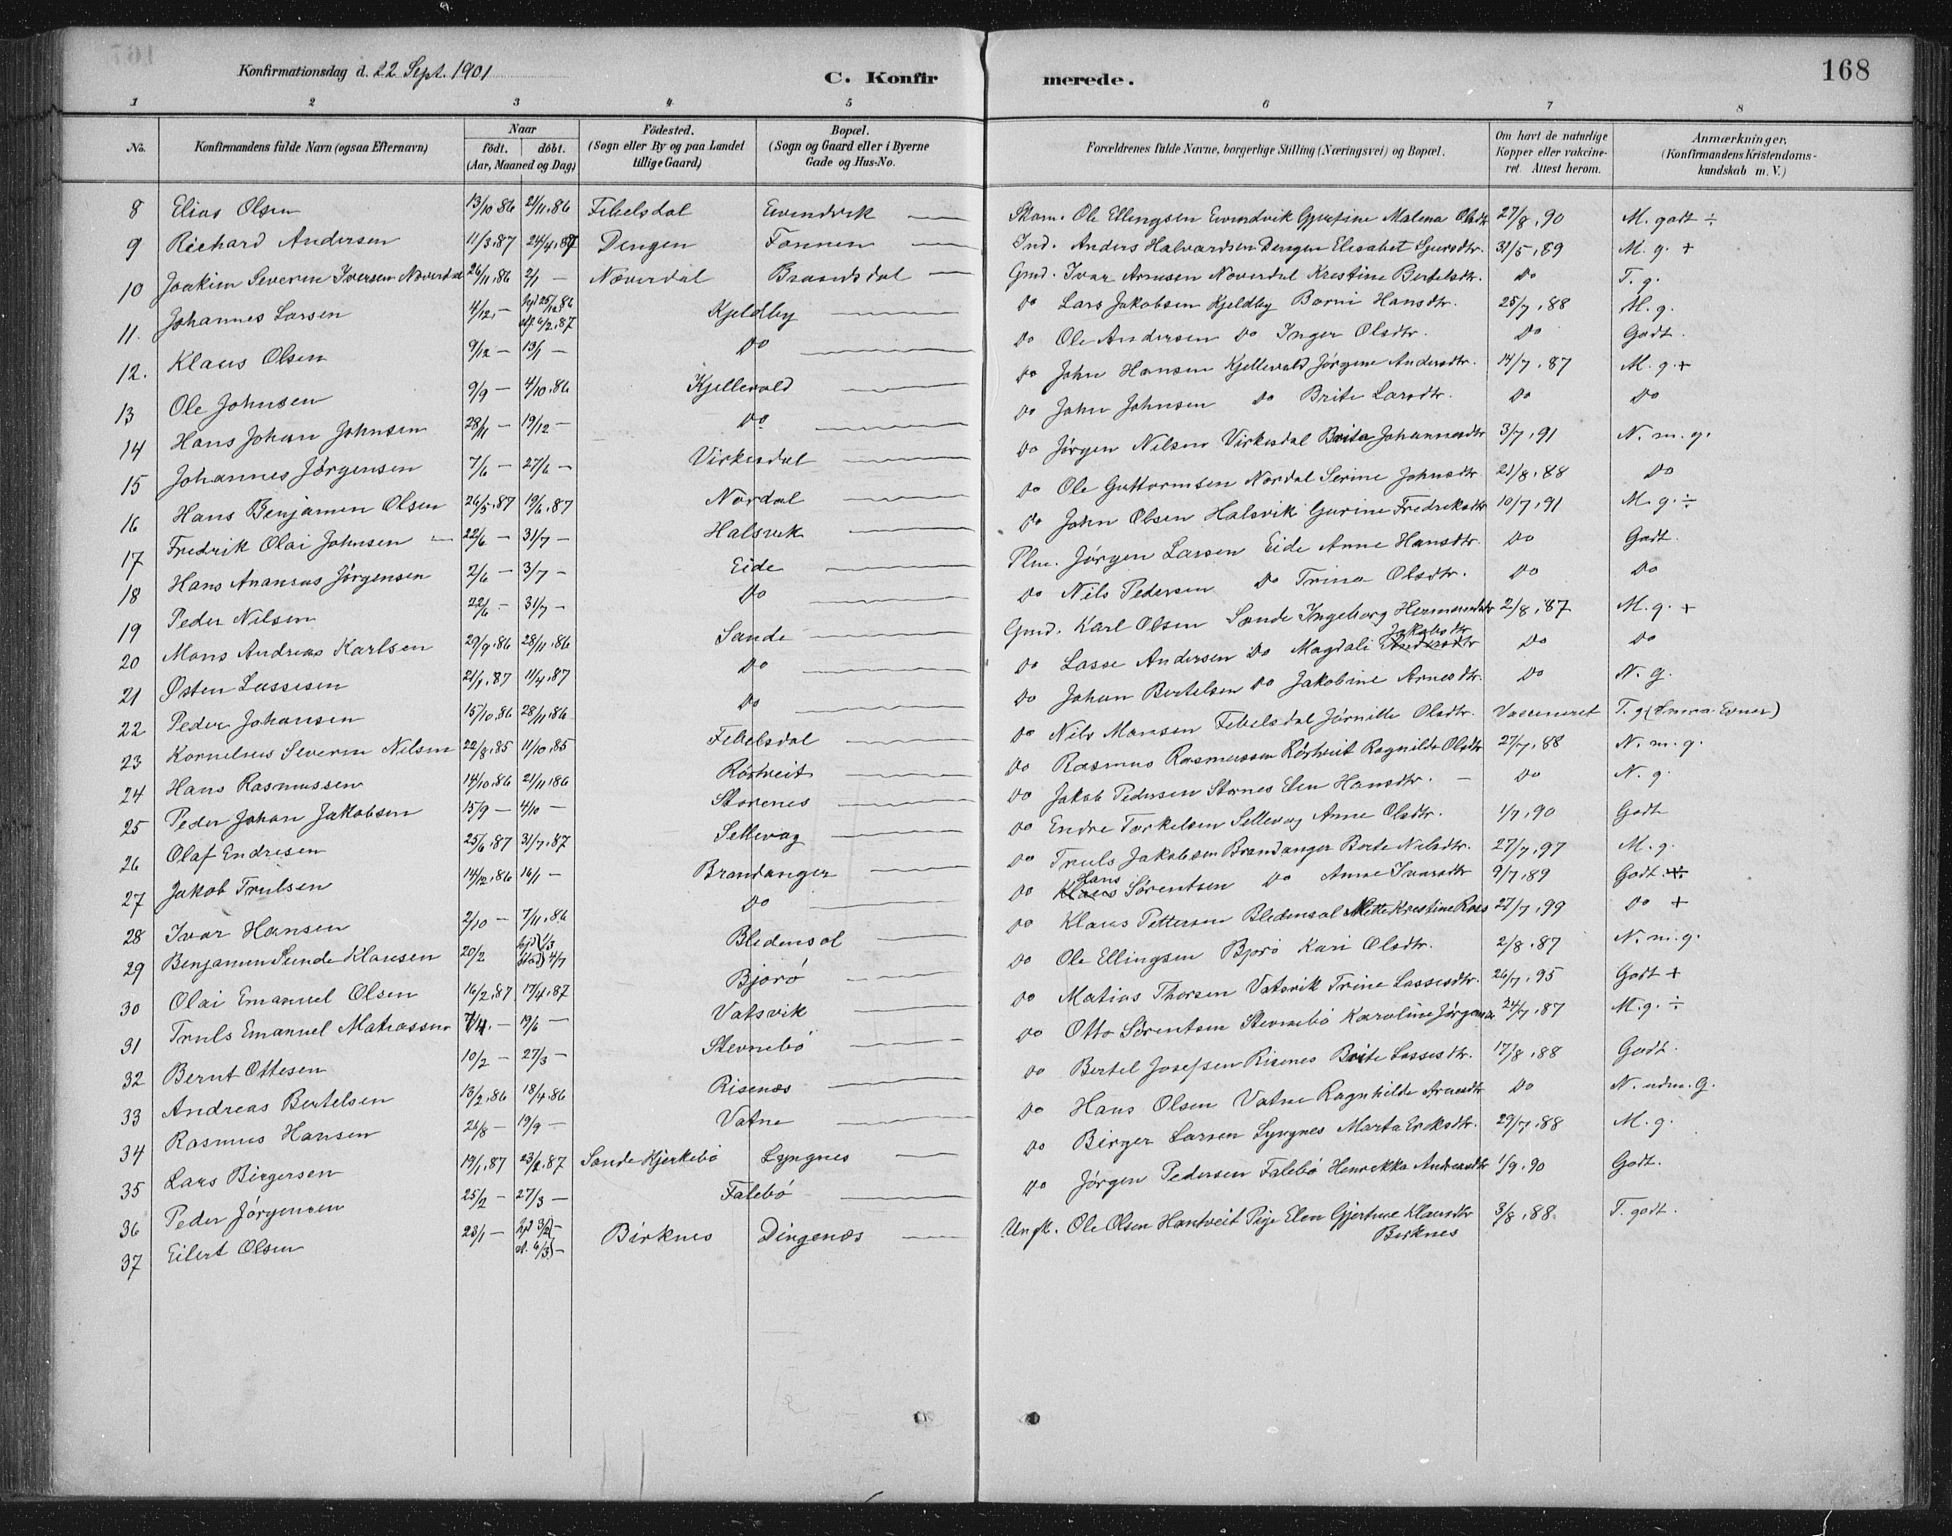 167
Konfirmationsdag d. 22 Sept. 1901
C. Konfir
merede.
168
1 2 3 4 5 6 7 8
No. Konfirmandens fulde Navn (ogsaa Efternavn) Naar födt. döbt. (Aar, Maaned og Dag) Födested. (Sogn eller By og paa Landet tillige Gaard) Bopæl. (Sogn og Gaard eller i Byerne Gade og Hus-No. Forældrenes fulde Navne, borgerlige Stilling (Næringsvei) og Bopæl. Om havt de naturlige Kopper eller vakcineret. Attest herom. Anmærkninger. (Konfirmandens Kristendomskundskab m. V.)
8 Elias Olsen 13/10.86 21/11.86 Febelsdal Evendvik — Ole Ellingsen Evendvik Malena Olsdtr 27/8.90 M. godt ÷
9 Richard Andersen 11/3.87 24/4.87 Dengen Fonnen — Ind. Anders Halvardsen Dengen Elisabet Sjursdtr. 31/5.89 M. g. +
10 Joakim Severin Iversen Næverdal 26/11.86 2/1 — Næverdal Brandsdal — Gmd. Ivar Arnesen Noverdal Kristine Bertelsdtr. Do T. g.
11. Johannes Larsen 4/12.— 25/12.86 6/2.87 Kjeldby — Do Lars Jakobsen Kjeldby Hansdtr. 25/7.88 M. g.
12. Klaus Olsen 9/12 — 13/1 — Do — Do Ole Andersen Do Inger Olsdtr. Do Godt.
13 Ole Johnsen 9/9 — 4/10.86 Kjellevold — Do John Hansen Kjellevold Jørgine Andersdtr. 14/7.87 M. g. +
14 Hans Johan Johnsen 28/11 — 19/12 — Do — Do John Johnsen Do Brite Larsdtr. Do Do
15 Johannes Jørgensen 7/6 — 27/6 — Virkesdal — Do Jørgen Nilsen Virkesdal Brita Johannesdtr 3/7.91 N. m. g.
16 Hans Benjamin Olsen 26/5.87 19/6.87 Nordal — Do Ole Guttormsen Nordal Serine Johnsdtr 21/8.88 Do
17 Fredrik Olai Johnsen — 22/6 — 31/7 — Halsvik — Do John Olsen Halsvik Gurine Fredriksdtr 10/7.91 M. g. ÷
18 Hans Ananias Jørgensen 2/6 — 3/7 — Eide — Plm. Jørgen Larsen Eide Anne Hansdtr. Do Godt.
19 Peder Nilsen 22/6 — 31/7 — Do — Do Nils Pedersen Do Trina Olsdtr. Do Do
20 Mons Andreas Karlsen 29/9.86 28/11.86 Sande — Gmd. Karl Olsen Sande Ingeborg Hermundsdtr 2/8.87 M. g. +
21 Østen Lassesen 21/1.87 11/4.87 Do — Do Lasse Andersen Do Magdali Jakobsdtr Do Do
22 Peder Johansen 15/10.86 28/11.86 Do — Do Johan Bertelsen Do Jakobine Arnesdtr. Do N. g.
23 Kornelius Severin Nilsen 22/8.85 11/10.85 Febelsdal — Do Nils Monsen Febelsdal Jørnille Olsdtr. Vaccineret T. g (Smaa Evner)
24 Hans Rasmussen 14/10.86 21/11.86 Röstveit — Do Rasmus Rasmussen Röstveit Ragnilde Olsdtr 27/7.88 N. m. g.
25 Peder Johan Jakobsen 15/9 — 4/10 — Storenes — Do Jakob Pedersen Stornes Elen Hansdtr. — Do N. g.
26 Olaf Endresen 25/6.87 31/7.87 Sellevag — Do Endre Torkelsen Sellevag Anne Olsdtr. 1/7.90 Godt
27 Jakob Trulsen 14/12.86 16/1 — Brandanger — Do Truls Jakobsen Brandanger Berte Nilsdtr. 27/7.97 M. g.
28 Ivar Hansen 2/10 — 7/11.86 Do — Do Hans Sørentsen Do Anne Ivarsdtr 9/7.89 Godt.
29 Benjamin Sunde Klausen 20/2 4/7 Bledensol — Do Klaus Pettersen Bledensol Mette Kristine Ross 27/7.99 Do +
30 Olai Emanuel Olsen 16/2.87 17/4.87 Bjorö — Do Ole Ellingsen Bjorö Kari Olsdtr. 2/8.87 N. m. g.
31 Truls Emanuel Matiassen 7/4.— 19/6 — Vatsvik — Do Matias Thorsen Vatsvik Trine Lassesdtr. 26/7.95 Godt +
32 Bernt Ottesen 10/2 — 27/3 — Stevnebö — Do Otto Sörentsen Stevnebö Karoline Jörgensdtr 24/7.87 M. g. ÷
33 Andreas Bertelsen 13/2.86 18/4.86 Risenæs — Do Bertel Josefsen Risenes Brite Lassesdtr. 17/8.88 Godt.
34 Rasmus Hansen 26/8 — 19/9 — Vatne — Do Hans Olsen Vatne Ragnhilde Arnesdtr Do N. udm. G.
35 Lars Birgersen 19/1.87 23/2.87 Sande Kjerkebö Lyngnes — Do Birger Larsen Lyngnes Marta Eriksdtr. 29/7.88 M. g.
36 Peder Jörgensen 25/2 — 27/3 — Falebö — Do Jörgen Pedersen Falebö Henrikka Andreasdtr 1/9.90 Godt.
37 Eilert Olsen 23/1 — 3/2 — 6/3 — Birknes Dingenæs — Ungk. Ole Olsen Hantveit Pige Elen Gjertine Klausdtr Birknes 3/8.88. T. godt.